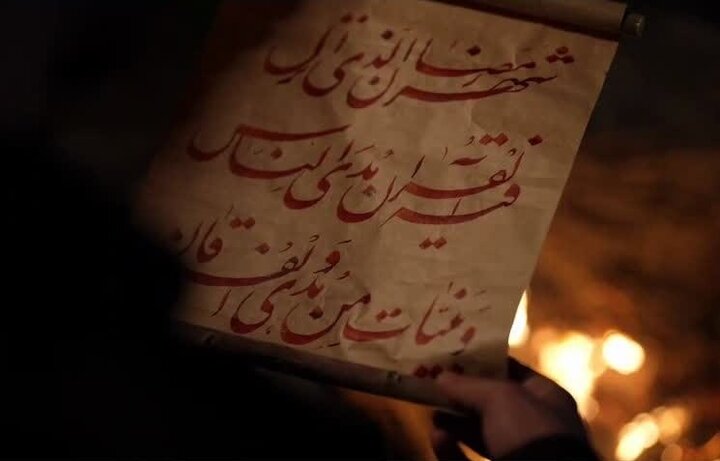 شهر رمضان الذی انزل
فیه القرآن هُدَی للنّاس
وَ بَیّنات مِنَ الهُدی وَ الفُرقان